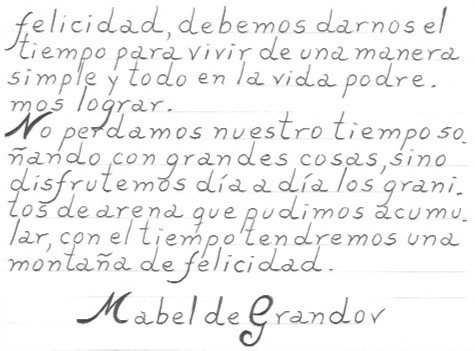 felicidad, debemos darnos el
tiempo para vivir de una manera
simple y todo en la vida podre-
mos lograr.
No perdamos nuestro tiempo so-
ñando con grandes cosas, sino
disfrutemos día a día los grani-
tos de arena que pudimos acumu-
lar, con el tiempo tendremos una
montaña de felicidad.
Mabel de Grandov